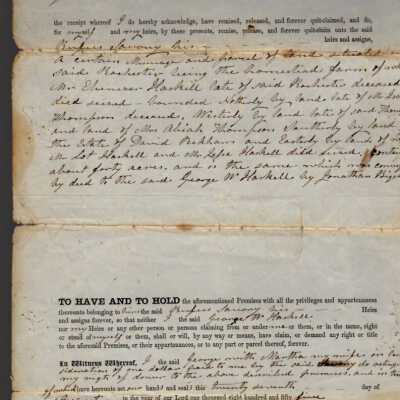 the receipt whereof I do hereby acknowledge, have remised, released, and forever quit-claimed, and do,
for myself and my heirs, by these presents, remise, release, and forever quit-claim unto the said
Rufus Savory his heirs and assigns,
A certain Messuage and parcel of land situated
said Rochester being the homestead farm of
Mr Ebenezer Haskell late of said Rochester deceased
died seized - bounded Northerly by land late of
Thompson deceased, Westerly by land late of said Thom
and land of Mrs Abiah Thompson Southerly by land
the Estate of David Peckham and Easterly by lands of
Mr Lot Haskell and Mr
about forty acres. and is the same which was convey
by deed to the said George W Haskell by Jonathan
TO HAVE AND TO HOLD the aforementioned Premises with all the privileges and appurtenances
thereunto belonging to him the said Rufus Savory his Heirs
and assigns forever, so that neither I the said George W. Haskell
nor my Heirs or any other person or persons claiming from or under me or them, or in the name, right
or stead of myself or them, shall or will, by any way or means, have claim, or demand any right or title
to the aforesaid Premises, or their appurtenances, or to any part or parcel thereof, forever.
In Witness Whereof, I the said George with Martha my wife in
sideration of one dollar paid to me by the said Savory do
my right of dower to the above described premises and in
of which have hereunto set our hand and seal this twenty seventh day of
in the year of our Lord one thousand eight hundred and fifty five